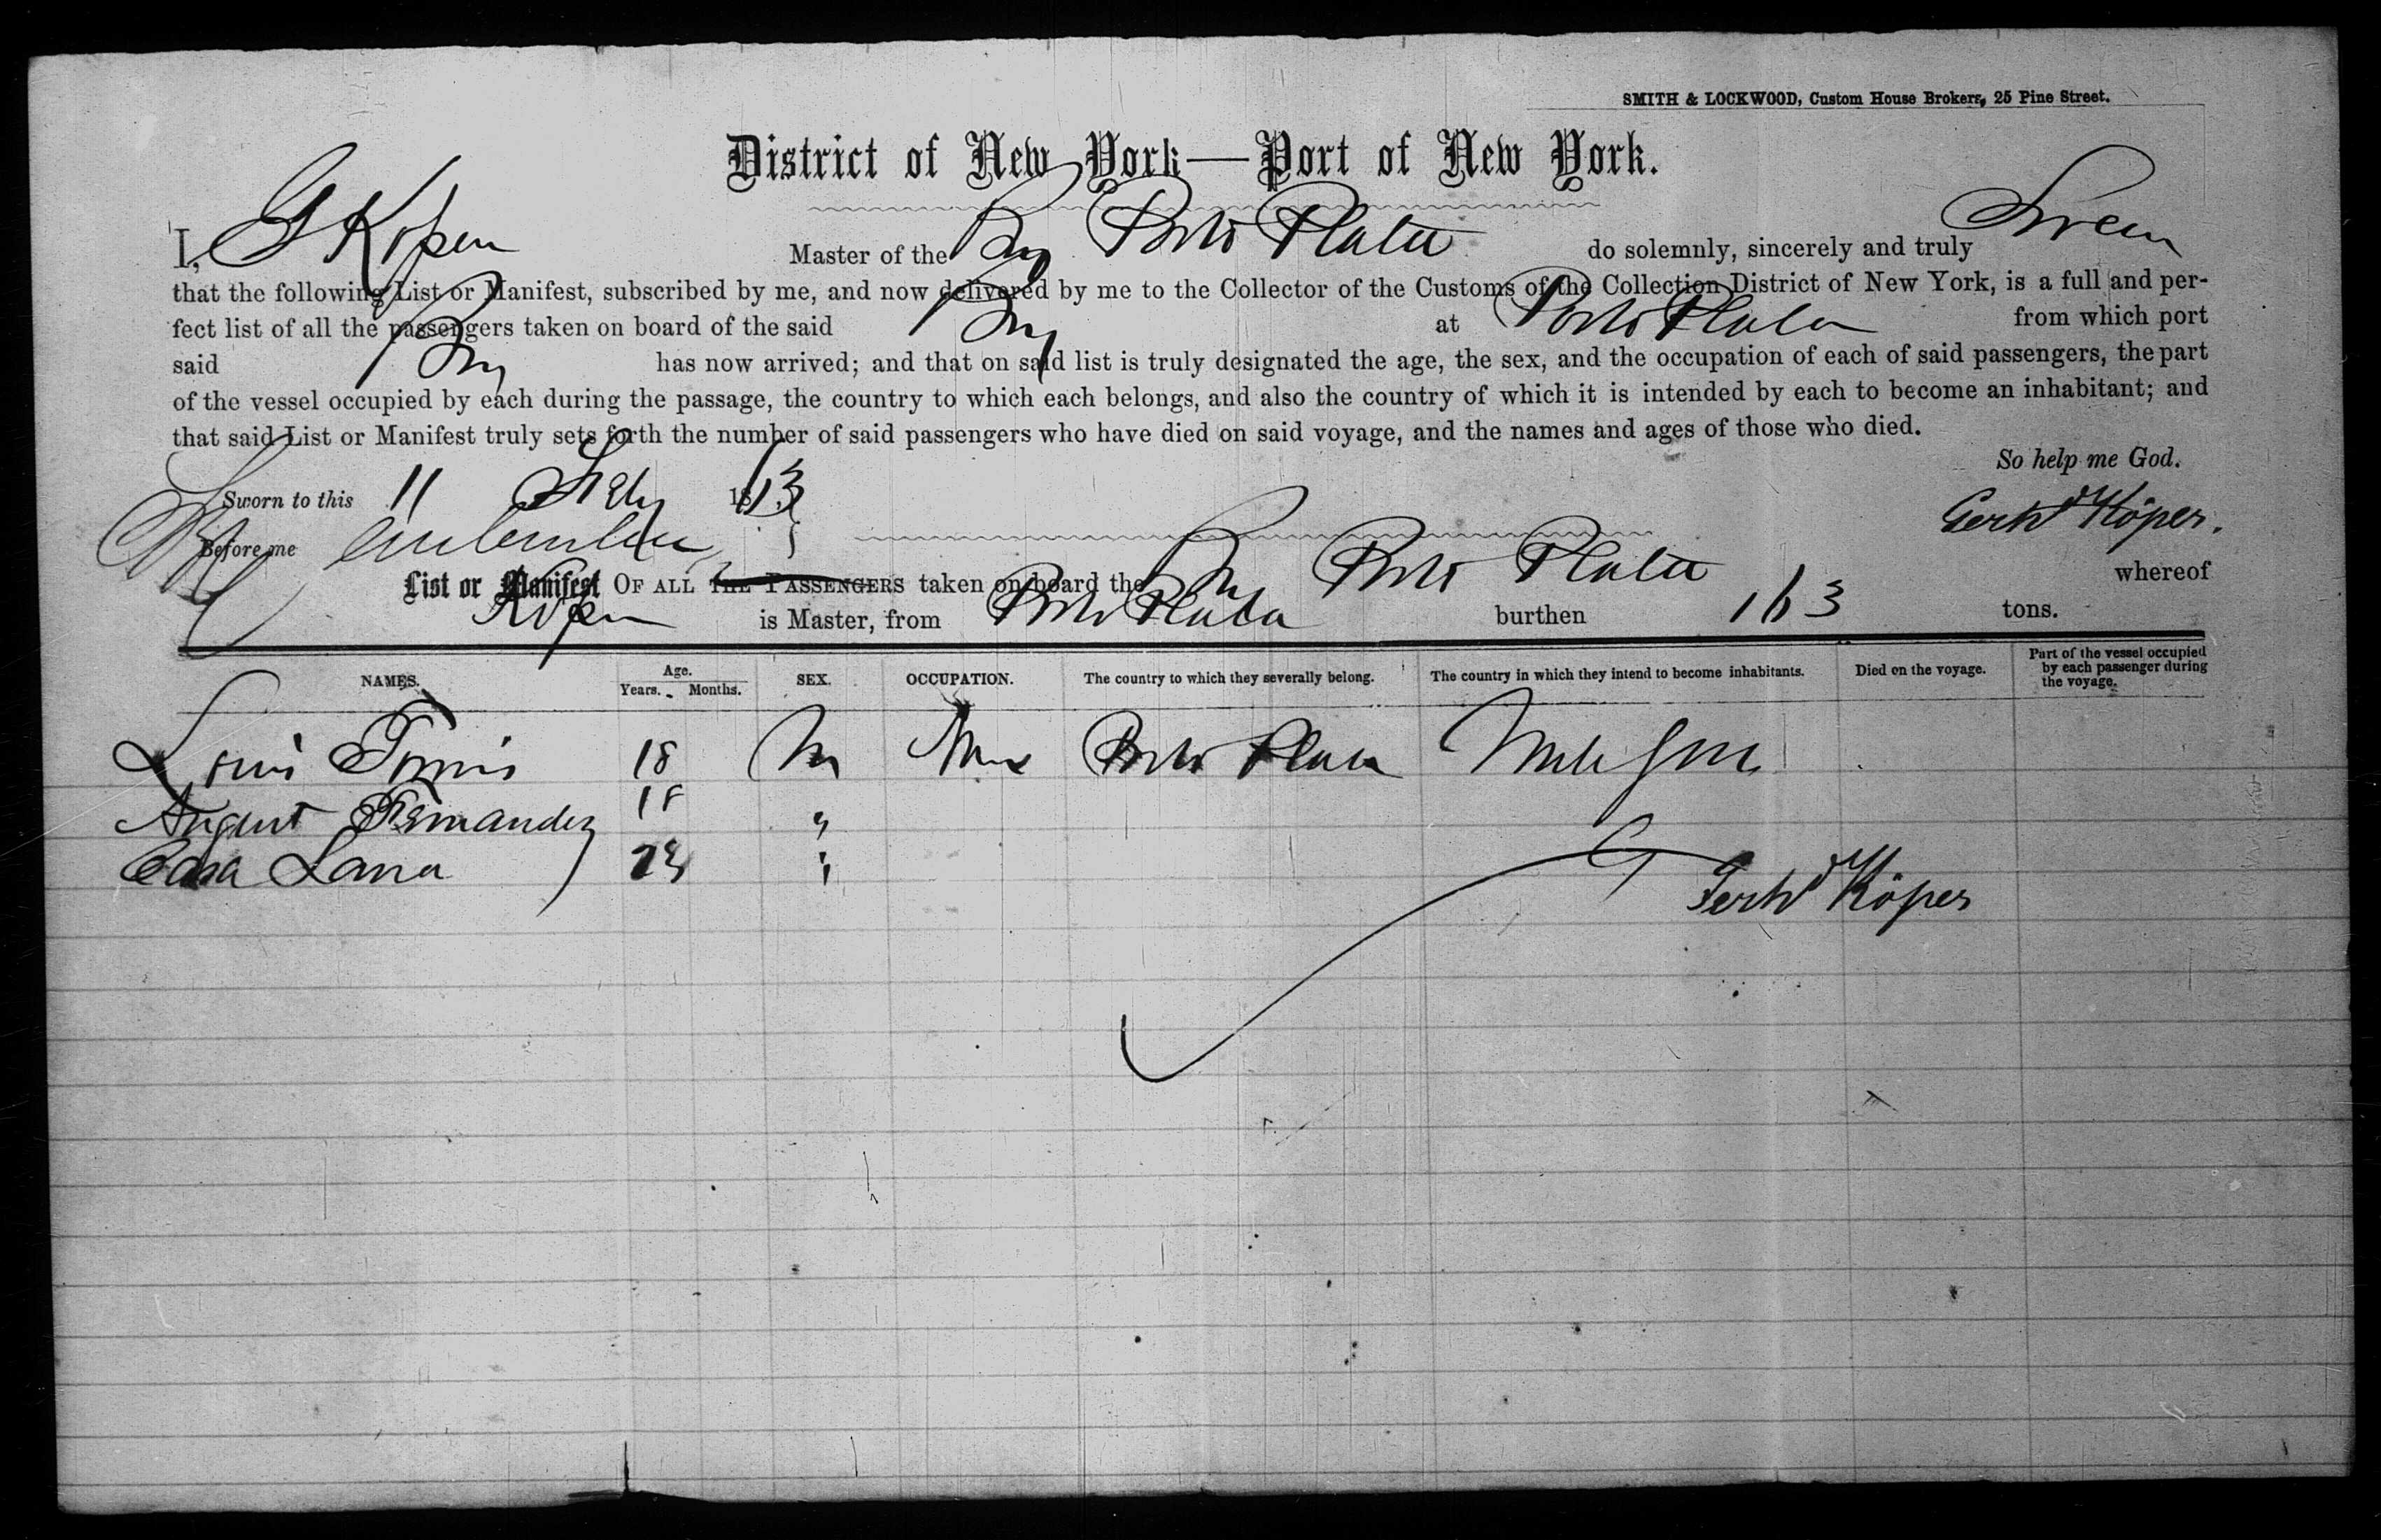 SMITH & LOCKWOOD, Custom House Brokers, 25 Pine Street.
District of New York—Port of New York.
I, G Koper Master of the Brig Porto Plata do solemnly, sincerely and truly Swear
that the following List or Manifest, subscribed by me, and now delivered by me to the Collector of the Customs of the Collection District of New York, is a full and per-
fect list of all the passengers taken on board of the said Brig at Porto Plata from which port
said Brig has now arrived; and that on said list is truly designated the age, the sex, and the occupation of each of said passengers, the part
of the vessel occupied by each during the passage, the country to which each belongs, and also the country of which it is intended by each to become an inhabitant; and
that said List or Manifest truly sets forth the number of said passengers who have died on said voyage, and the names and ages of those who died.
So help me God.
Sworn to this 11 18 Gerhd Köper.
Before me
List or Manifest OF ALL THE PASSENGERS taken on board the Brig Porto Plata whereof
Koper is Master, from Porto Plata burthen 163 tons.
NAMES. Age. Years. Months. SEX. OCCUPATION. The country to which they severally belong. The country in which they intend to become inhabitants. Died on the voyage. Part of the vessel occupied by each passenger during the voyage.
Louis 18 M Porto Plata
August Fernandez 18 "
Lara 23 "
Gerhd Köper